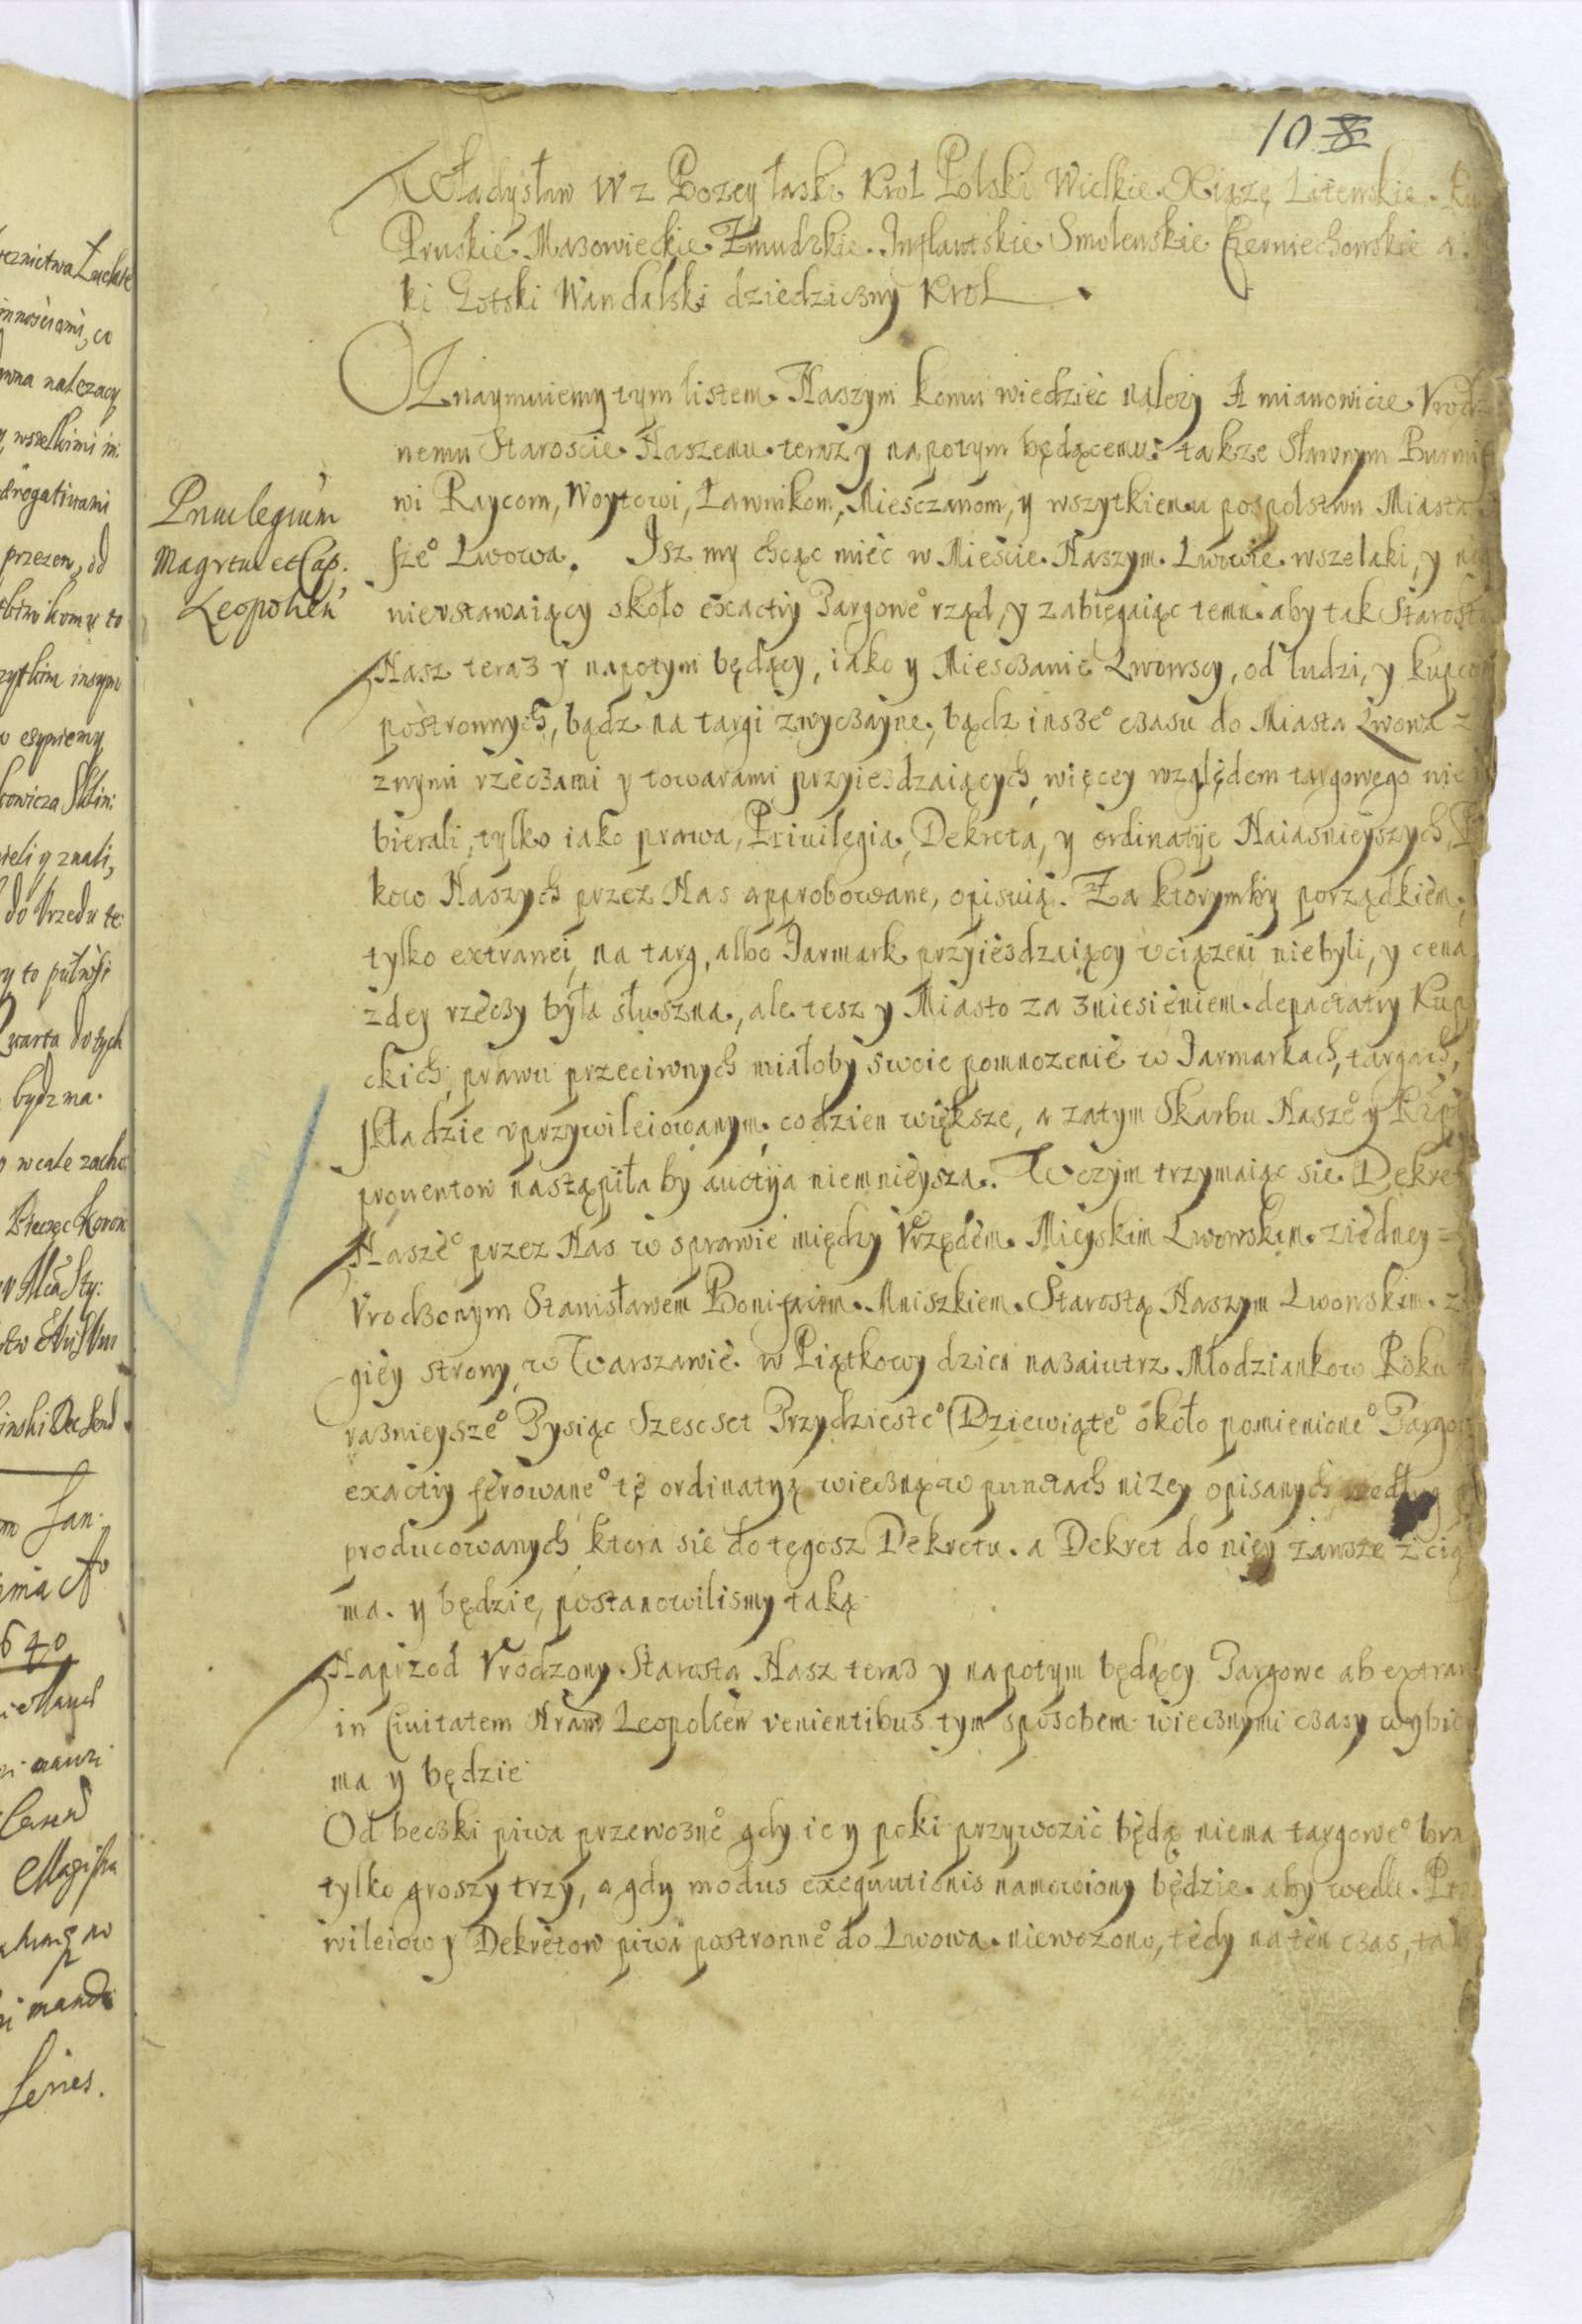 10
Władysław IV z Bozey łaski Krol Polski Wielkie Xiązę Litewskie
Pruskie Mazowieckie Zmudzkie Inflantskie Smolenskie Czerniechowskie a
ki Gotski Wandalski dziedziczny Krol
Oznaymuiemy tym listem Naszym komu wiedziec nalezy A mianowicie Vrodz
nemu Staroscie Naszemu teraz y napotym będącemu: takze Sławnym Burmis
wi Raycom, Woytowi, Ławnikom, Miesczanom, y wszytkiemu pospolstwu Miasta
sze° Lwowa. Isz my chcąc miec w Miescie Naszym Lwowie wszelaki, y ni
nievstawaiący około exactiy Targowe° rząd, y zabiegaiąc temu aby tak Starosta
Nasz teraz y napotym będący, iako y Miesczanie Lwowscy, od ludzi, y kupcow
postronnych, bądz na targi zwyczayne, bądz insze° czasu do Miasta Lwowa z
znymi rzeczami y towarami przyiezdzaiących, więcey względem targowego nie
bierali, tylko iako prawa, Priuilegia, Dekreta, y ordinatije Naiasnieyszych P
kow Naszych przez Nas approbowane, opisuią. Za ktorymby porządkiem,
tylko extranei, na targ, albo Iarmark przyiezdzaiący vciązeni niebyli, y cena
zdey rzeczy była słuszna, ale tesz y Miasto za zniesieniem depactatiy Kup
ckich, prawu przeciwnych miałoby swoie pomnozenie w Iarmarkach, targach,
składzie vprzywileiowanym, codzien większe, a zatym Skarbu Nasze° y Rzpt
prowentow nastąpiłaby auctija niemnieysza. W czym trzymaiąc sie Dekret
Nasze° przez Nas w sprawie między Vrzędem Mieyskim Lwowskim ziedney
Vrodzonym Stanisławem Bonifacim Mniszkiem Starostą Naszym Lwowskim z
giey strony, w Warszawie w Piątkowy dzien nazaiutrz Młodziankow Roku t
raznieysze° Tysiąc Szescset Trzydzieste° Dziewiąte° około pomienione° Targow
exactiy ferowane° tę ordinatyą wieczną w punctach nizey opisanych według
producowanych ktora sie do tegosz Dekretu a Dekret do niey zawsze zcią
ma y będzie, postanowilismy taką
Naprzod Vrodzony Starosta Nasz teraz y napotym będący Targowe ab extran
in Ciuitatem Nram Leopolien venientibus tym sposobem wiecznymi czasy wybie
ma y będzie
Od beczki piwa przewozne° gdy ie y poki przywozic będą niema targowe° bra
tylko groszy trzy, a gdy modus exequutionis namowiony będzie aby wedle Pr
wileiow y Dekretow piwa postronne° do Lwowa niewozono, tedy na ten czas, tak
Priuilegium
Magrtui et Cap.
Leopolien